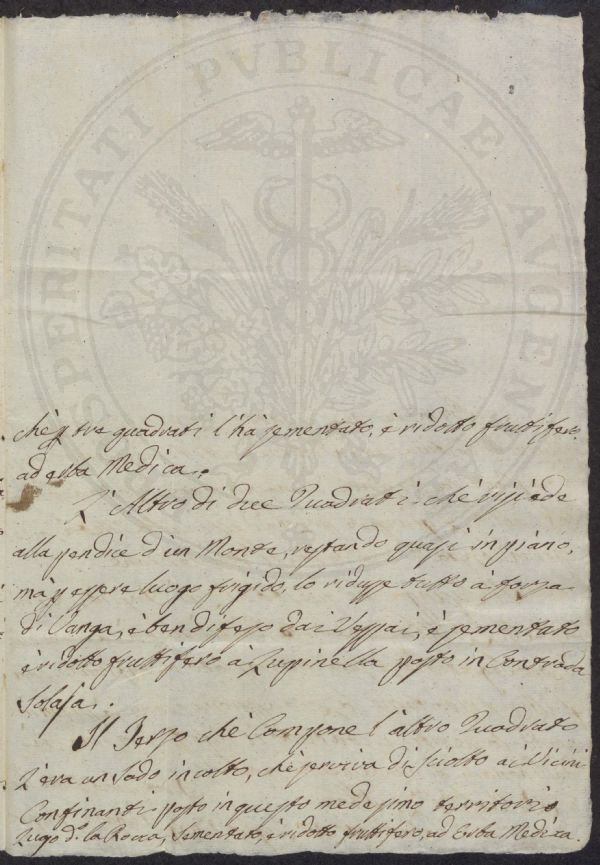 PROSPERITATI PVBLICAE AVGENDAE
2
chè p tre quadrati l'hà sementato, è ridotto fruttifero
ad erba Medica.
L'Altro di due Quadrati chè risiede
alla pendice d'un Monte, restando quasi in piano,
mà p essere luogo frigido, lo ridusse tutto à forza
di Vanga, è ben difeso da i è sementato
è ridotto fruttifero à Lupinella posto in Contrada
Solaja.
Il Terzo chè Compone l'altro Quadrato
L'era un sodo incolto, chè serviva di Scolto a i Vicini
Confinanti posto in questo medesimo territorio
d.º la Rocca, Sementato, è ridotto fruttifero, ad Erba Medica.